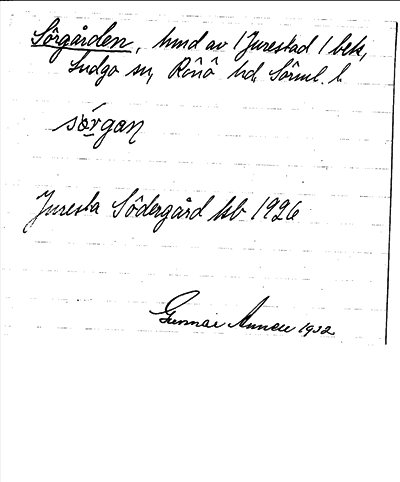 Sörgården, hmd av 1 Jurestad 1 bek,
Ludgo sn, Rönö hd, Sörml. l.
sörgan
Juresta Södergård kb 1926
Gunnar 1932